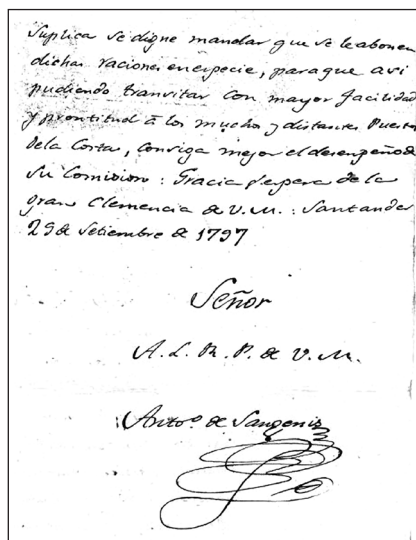 Suplica se digne mandar que se le abonen
dichas raciones en especie, para que asi
pudiendo transitar con mayor facilidad
y prontitud â los muchos y distantes Puestos
de la Costa, consiga mejor el desempeño de
su Comision: Gracia q.e espera de la
gran Clemencia de V. M.: Santander
29 de Setiembre de 1797
Señor
A. L. R. P. de V. M.
Anto.o de Sangenis